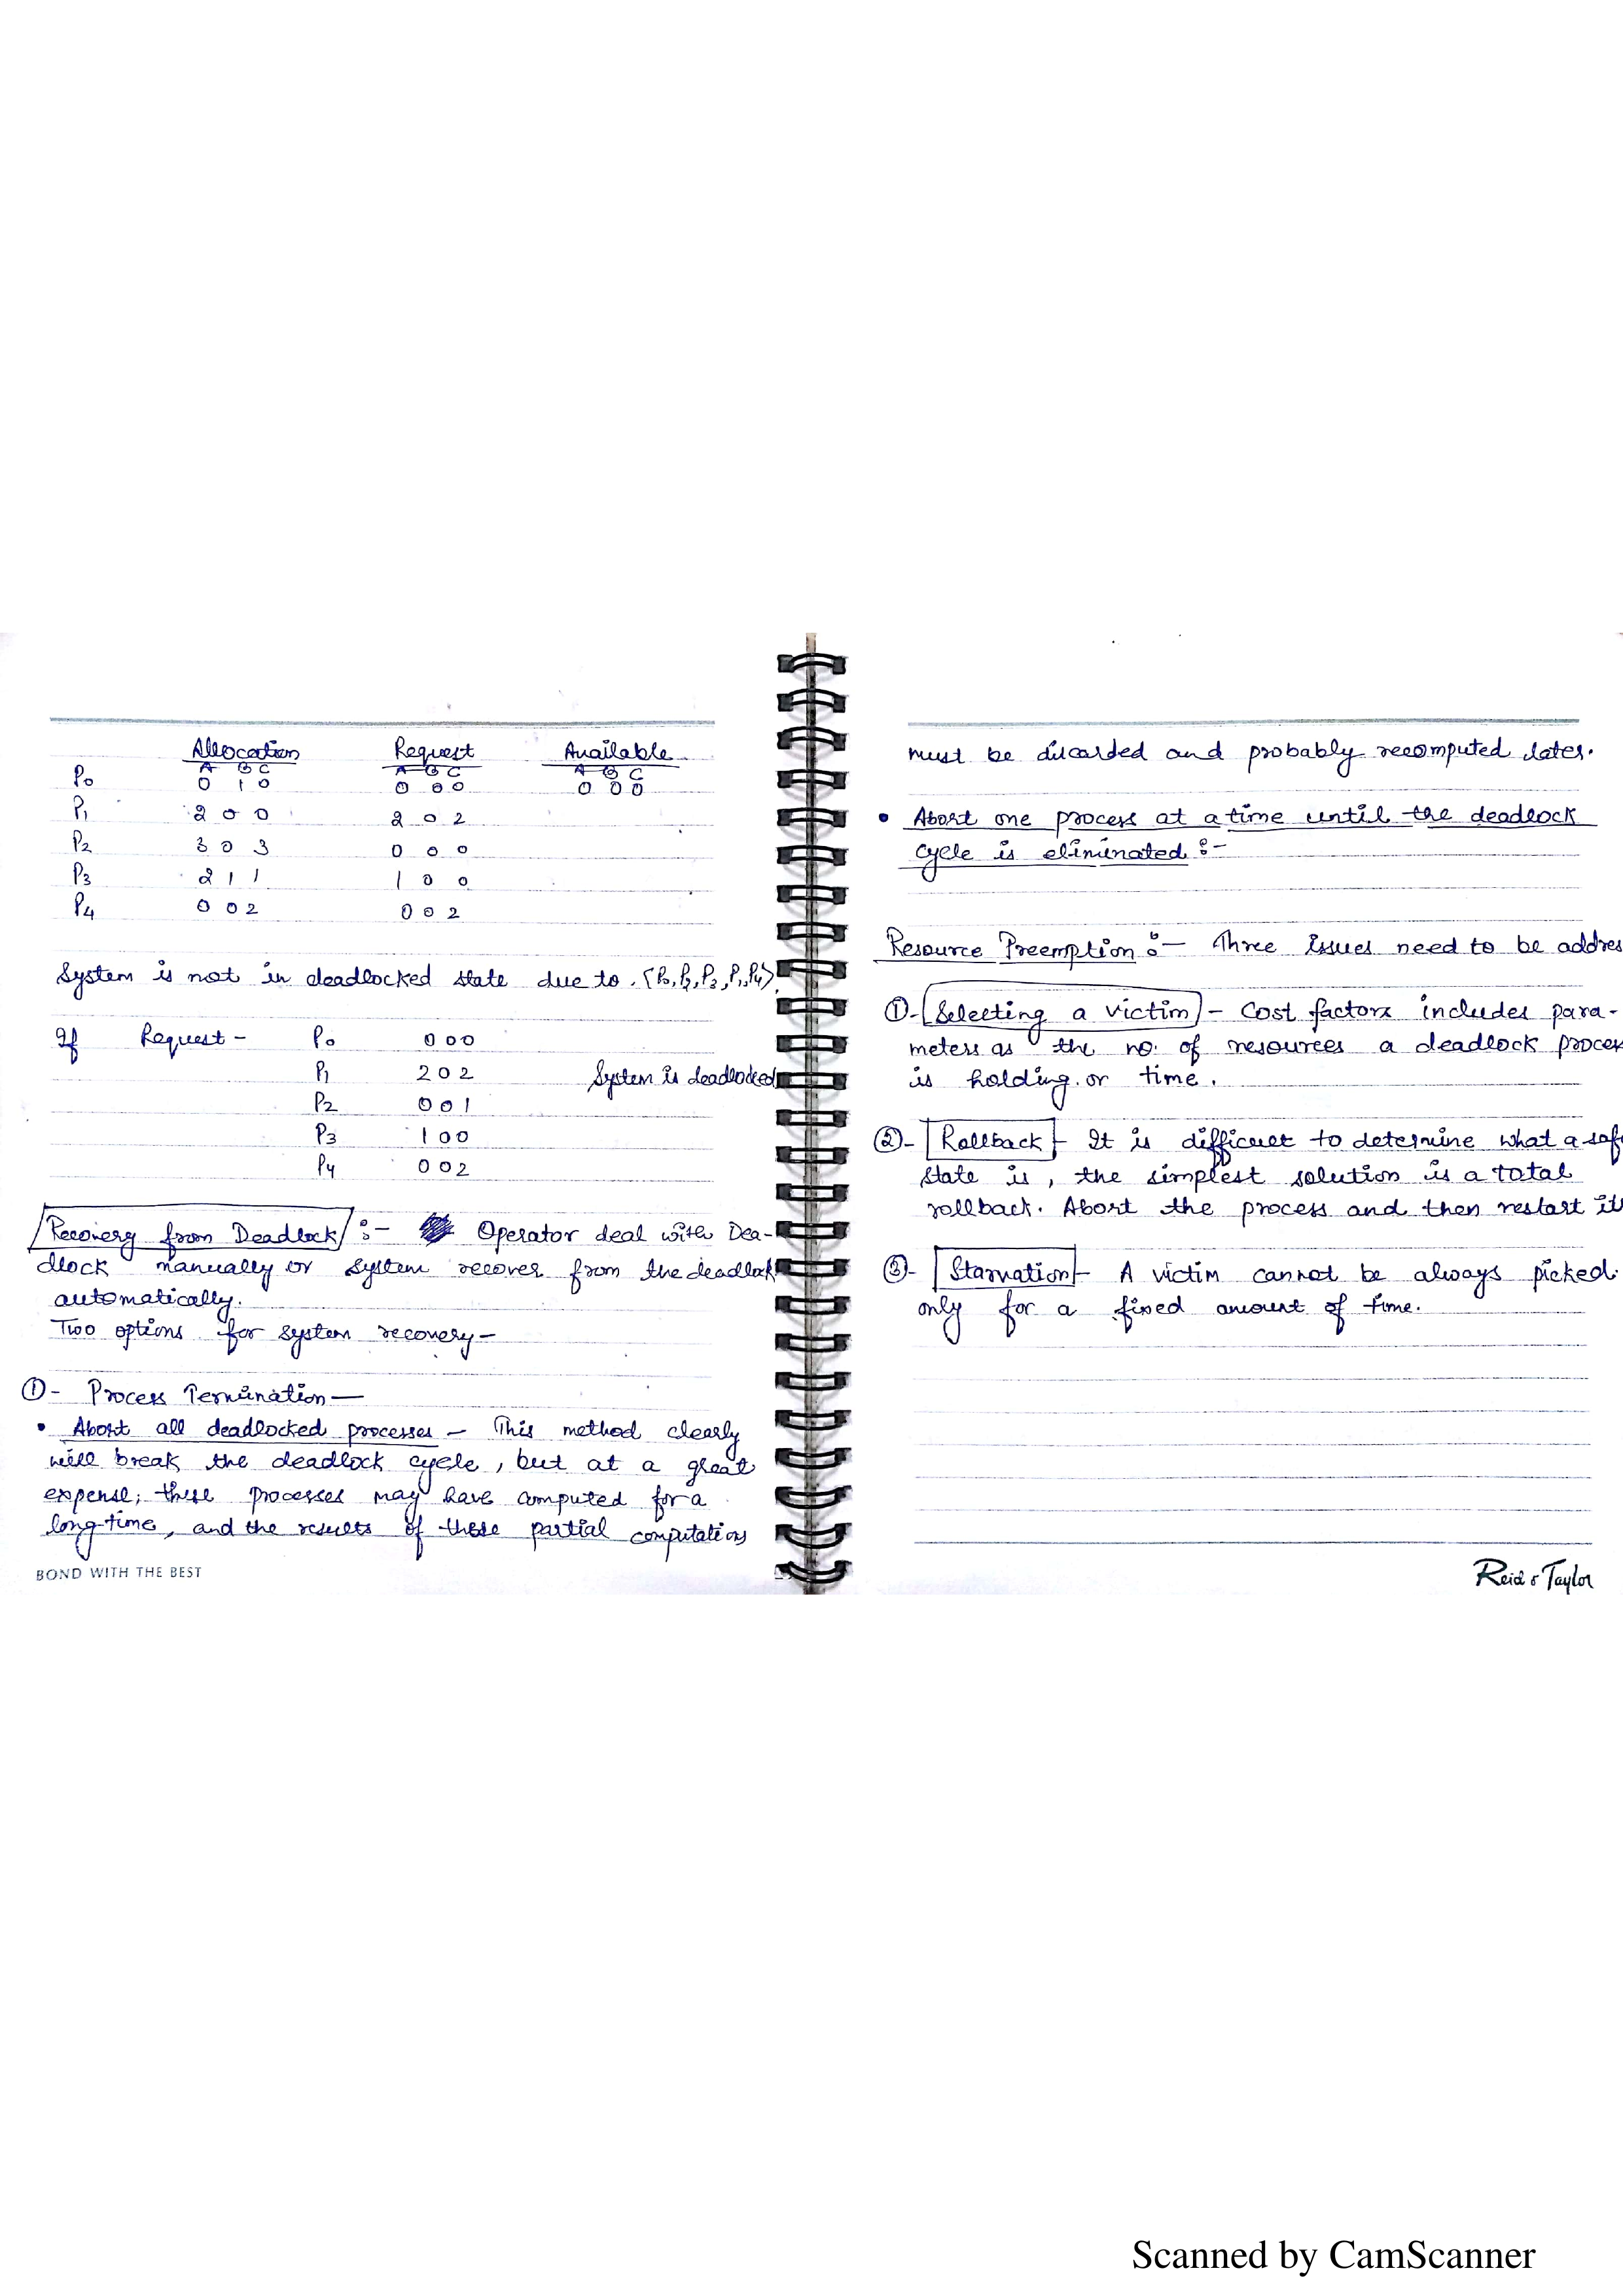 Allocation Request Available
A B C A B C A B C
P0 0 1 0 0 0 0 0 0 0
P1 2 0 0 2 0 2
P2 3 0 3 0 0 0
P3 2 1 1 1 0 0
P4 0 0 2 0 0 2
System is not in deadlocked state due to <P0, P2, P3, P1, P4>
If Request - P0 0 0 0
P1 2 0 2 System is deadlocked
P2 0 0 1
P3 1 0 0
P4 0 0 2
Recovery from Deadlock :- Operator deal with Dea-
dlock manually or system recover from the deadlock
automatically.
Two options for system recovery -
① - Process Termination —
• Abort all deadlocked processes - This method clearly
will break the deadlock cycle, but at a great
expense; these processes may have computed for a
long time, and the results of these partial computations
BOND WITH THE BEST
must be discarded and probably recomputed later.
• Abort one process at a time until the deadlock
cycle is eliminated :-
Resource Preemption :- Three issues need to be addres
① - Selecting a victim - Cost factors includes para-
meters as the no. of resources a deadlock proces
is holding or time.
② - Rollback - It is difficult to determine what a saf
state is, the simplest solution is a total
rollback. Abort the process and then restart it
③ - Starvation - A victim cannot be always picked
only for a fixed amount of time.
Reid & Taylor
Scanned by CamScanner